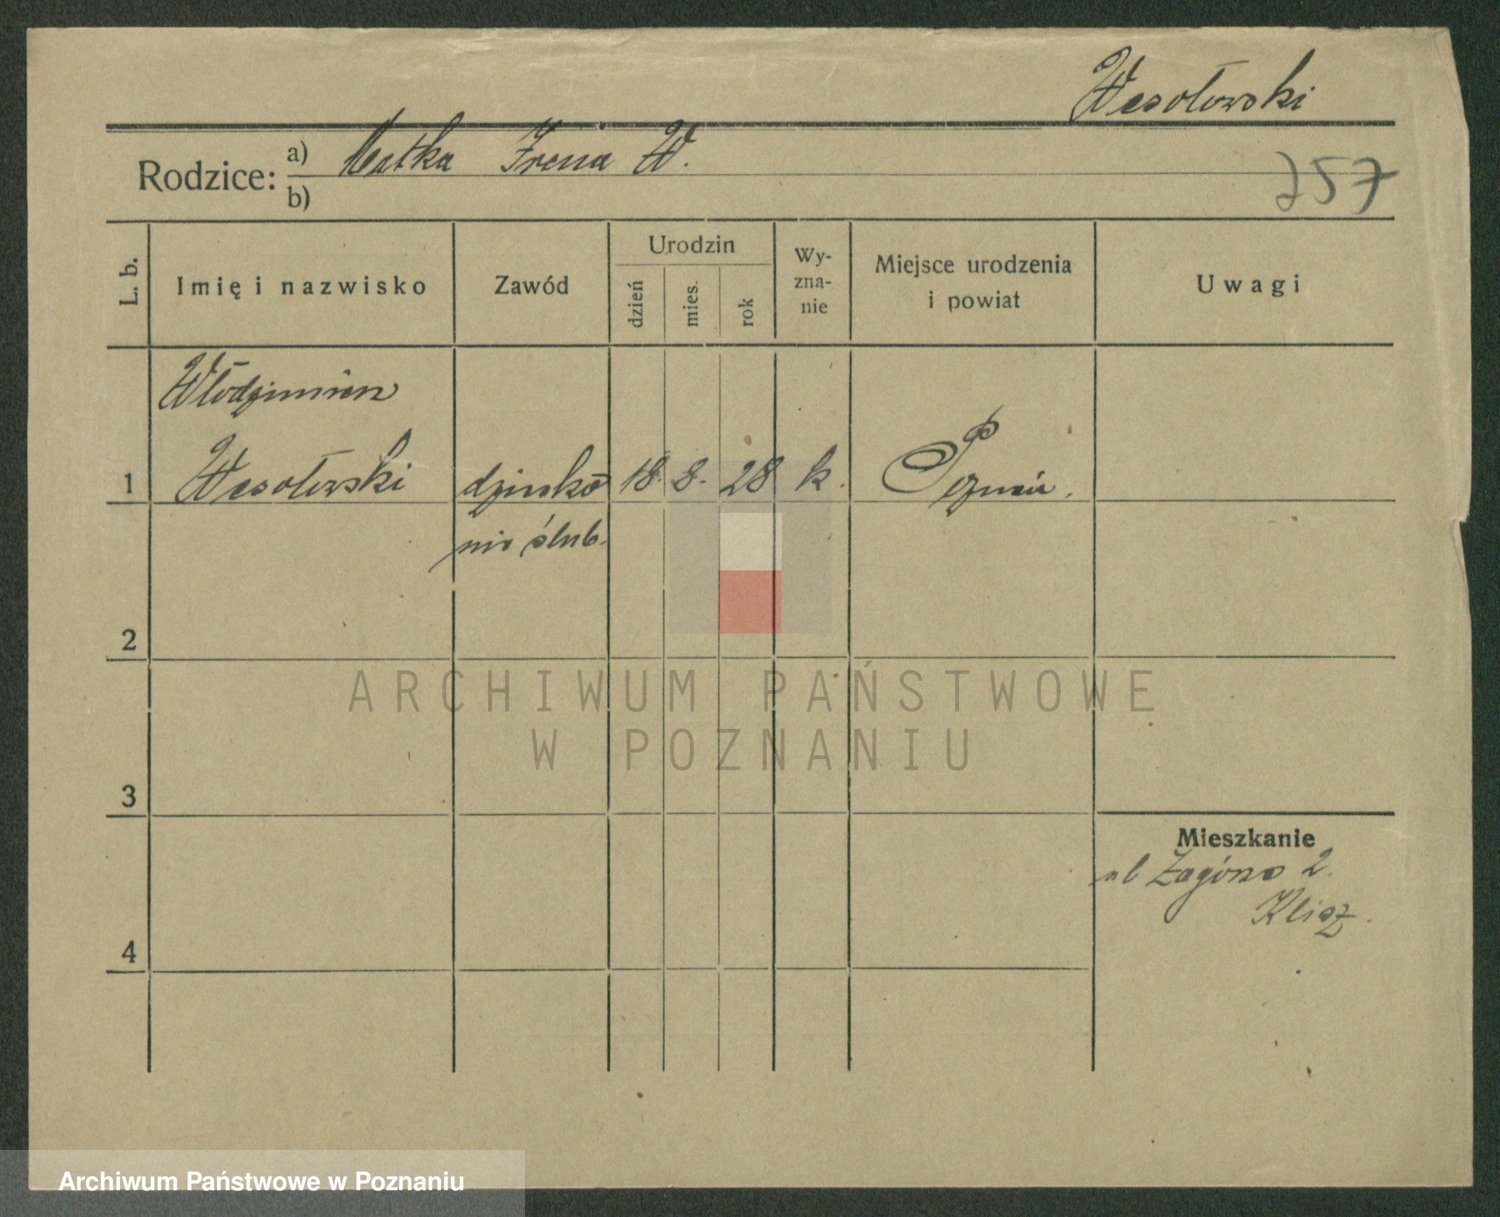 Wesołowski
Rodzice: a) Matka Irena W.
b)
257
L. b.
Imię i nazwisko
Zawód
Urodzin
dzień
mies.
rok
Wy-
zna-
nie
Miejsce urodzenia
i powiat
Uwagi
Włodzimierz
1 Wesołowski dziecko 18. 8. 28 k. Poznań.
nie ślub.
2
3
4
Mieszkanie
ul Zagórze 2.
Klisz.
ARCHIWUM PAŃSTWOWE
W POZNANIU
Archiwum Państwowe w Poznaniu